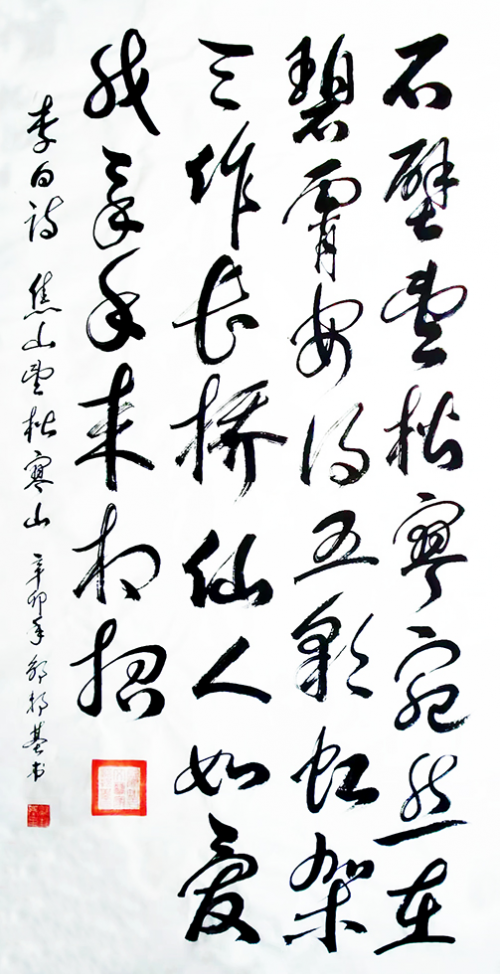 石壁望松寥宛然在
碧霄安得五彩虹架
天作长桥仙人如爱
我举手来相招
李白诗 焦山望松寥山 辛卯年 基书